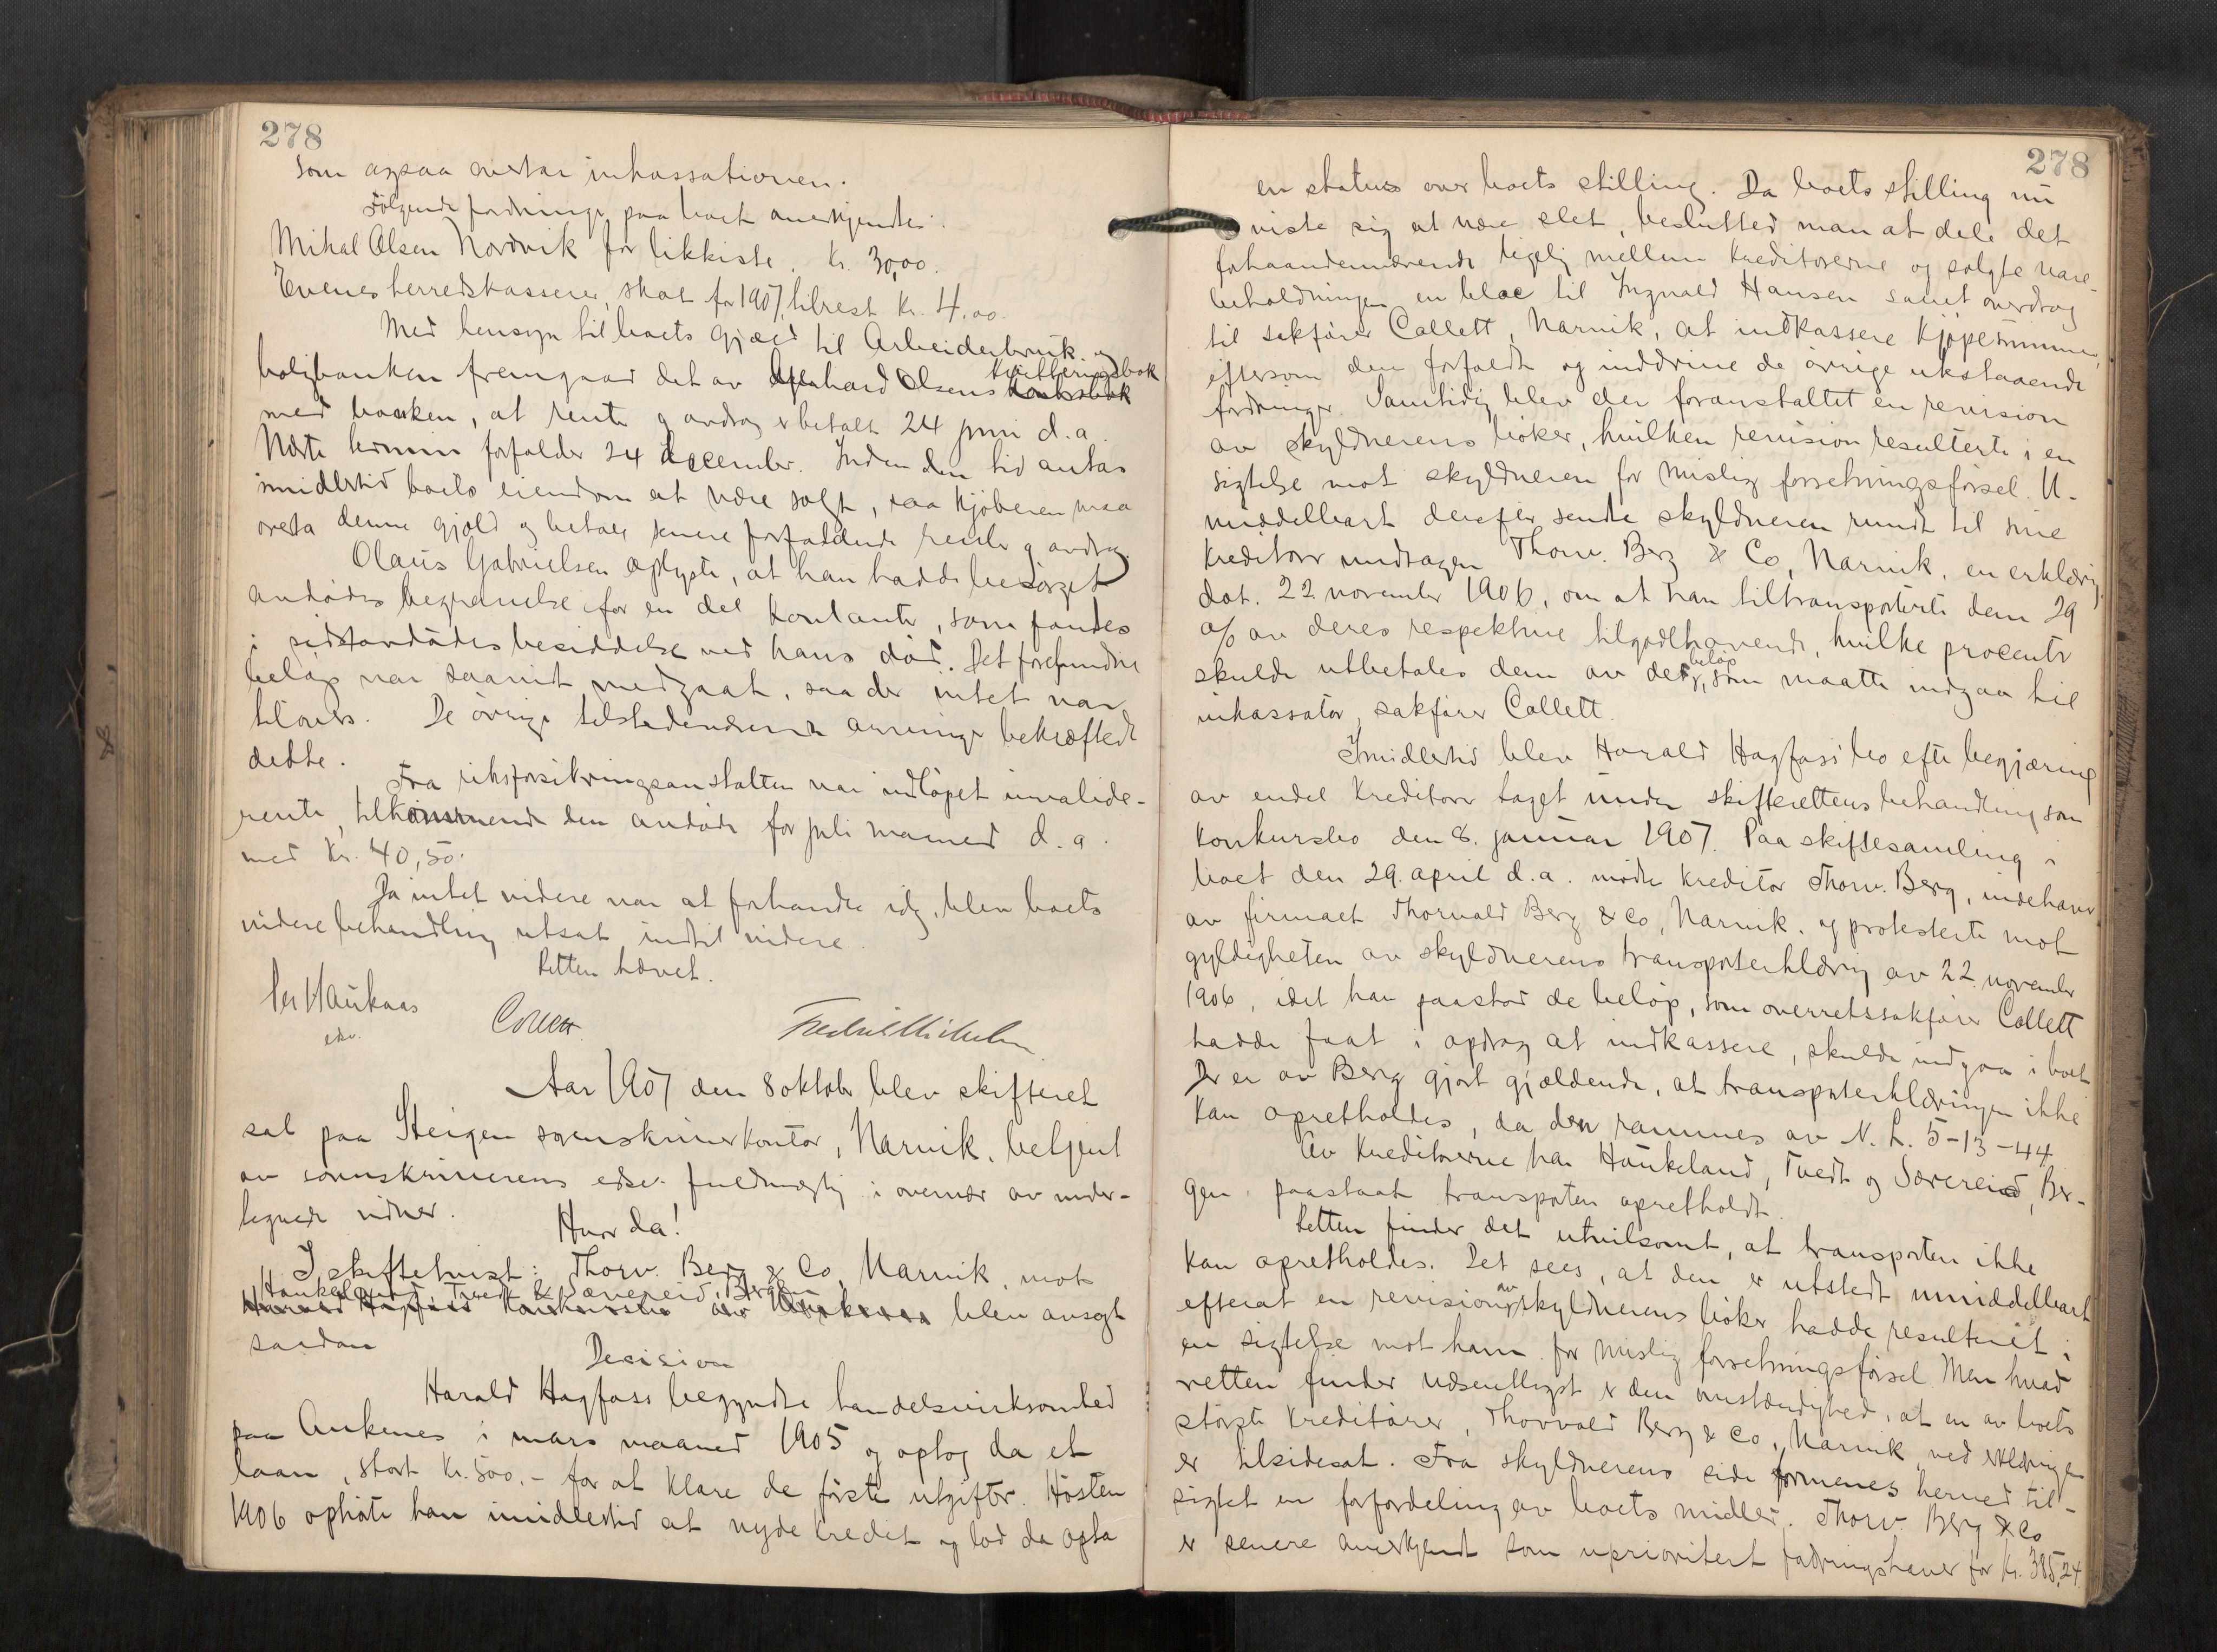 278
som ogsaa overtar inkassationen.
Følgende fordringer paa boet anerkjendtes:
Mikal Olsen Nordvik for likkiste. kr. 30,00.
Evenes herredskasserer, skat for 1907, tilrest kr. 4,00.
Med hensyn til boets gjæld til Arbeiderbruk og
boligbanken fremgaar det av Olsens kvitteringsbok
med banken, at rente og avdrag er betalt 24 juni d.a.
Næste termin forfalder 24 december. Inden den tid antas
imidlertid boets eiendom at være solgt, saa kjøberen maa
overta denne gjæld og betale senere forfaldende rente og avdrag.
Olaus Gabrielsen oplyste, at han hadde besørget
avdødes begravelse for en del kontante, som fandtes
i sidstavdødes besiddelse ved hans død. Det forefundne
beløp var saavidt medgaat, saa der intet var
tilovers. De øvrige tilstedeværende arvinger bekræftede
dette.
Fra riksforsikringsanstalten var indløpet invalide-
rente, tilkommende den avdøde for juli maaned d.a.
med kr. 40,50.
Da intet videre var at forhandle idag, blev boets
videre behandling utsat indtil videre.
Retten hævet.
Per Haukaas Collett Fredrik Mikkelsen
edsv.
Aar 1907 den 8 oktober blev skifteret
sat paa Steigen sorenskriverkontor, Narvik, betjent
av sorenskriverens edsv. fuldmægtig i overvær av under-
tegnede vidner.
Hvor da!
I skiftetvist: Thorv. Berg & Co, Narvik, mot
Haukeland, Tvedt & Særereid, Bergen
blev avsagt
saadan
Decision
Harald Hagfass begyndte handelsvirksomhed
paa Ankenes i mars maaned 1905 og optog da et
laan, stort kr. 500.- for at klare de første utgifter. Høsten
1906 ophørte han imidlertid at nyde kredit og lod da opta
278
en status over boets stilling. Da boets stilling nu
viste sig at være slet, beslutted man at dele det
forhaandenværende ligelig mellem kreditorerne og solgte vare-
beholdningen en bloc til Ingvald Hansen samt overdrog
til sakfører Collett, Narvik, at indkassere kjøpesummen,
eftersom den forfaldt og inddrive de øvrige utestaaende
fordringer. Samtidig blev der foranstaltet en revision
av skyldnerens bøker, hvilken revision resulterte i en
sigtelse mot skyldneren for mislig forretningsførsel. U-
middelbart derefter sendte skyldneren rundt til sine
kreditorer undtagen Thorv. Berg & Co, Narvik, en erklæring,
dat. 22 november 1906, om at han tiltransporterte dem 29
o/o av deres respektive tilgodehavende, hvilke procenter
skulde utbetales dem av det beløp, som maatte indgaa til
inkassator, sakfører Collett.
Imidlertid blev Harald Hagfass' bo efter begjæring
av endel kreditorer taget under skifterettens behandling som
konkursbo den 8. januar 1907. Paa skiftesamling i
boet den 29. april d.a. møtte kreditor Thorv. Berg, indehaver
av firmaet Thorvald Berg & Co, Narvik, og protesterte mot
gyldigheten av skyldnerens transporterklæring av 22 november
1906, idet han paastod de beløp, som overretssakfører Collett
hadde faat i opdrag at indkassere, skulde indgaa i boet.
Det er av Berg gjort gjældende, at transporterklæringen ikke
kan opretholdes, da den rammes av N. L. 5-13-44.
Av kreditorerne har Haukeland, Tvedt og Særereid, Ber-
gen, paastaat transporten opretholdt.
Retten finder det utvilsomt, at transporten ikke
kan opretholdes. Det sees, at den er utstedt umiddelbart
efterat en revision av skyldnerens bøker hadde resulteret i
en sigtelse mot ham for mislig forretningsførsel. Men hvad
retten finder væsentligst er den omstændighed, at en av boets
største kreditorer, Thorvald Berg & Co, Narvik ved erklæringen
er tilsidesat. Fra skyldnerens side formenes herved til-
sigtet en forfordeling av boets midler. Thorv. Berg & Co
er senere anerkjendt som uprioritert fordringshaver for kr. 385,24